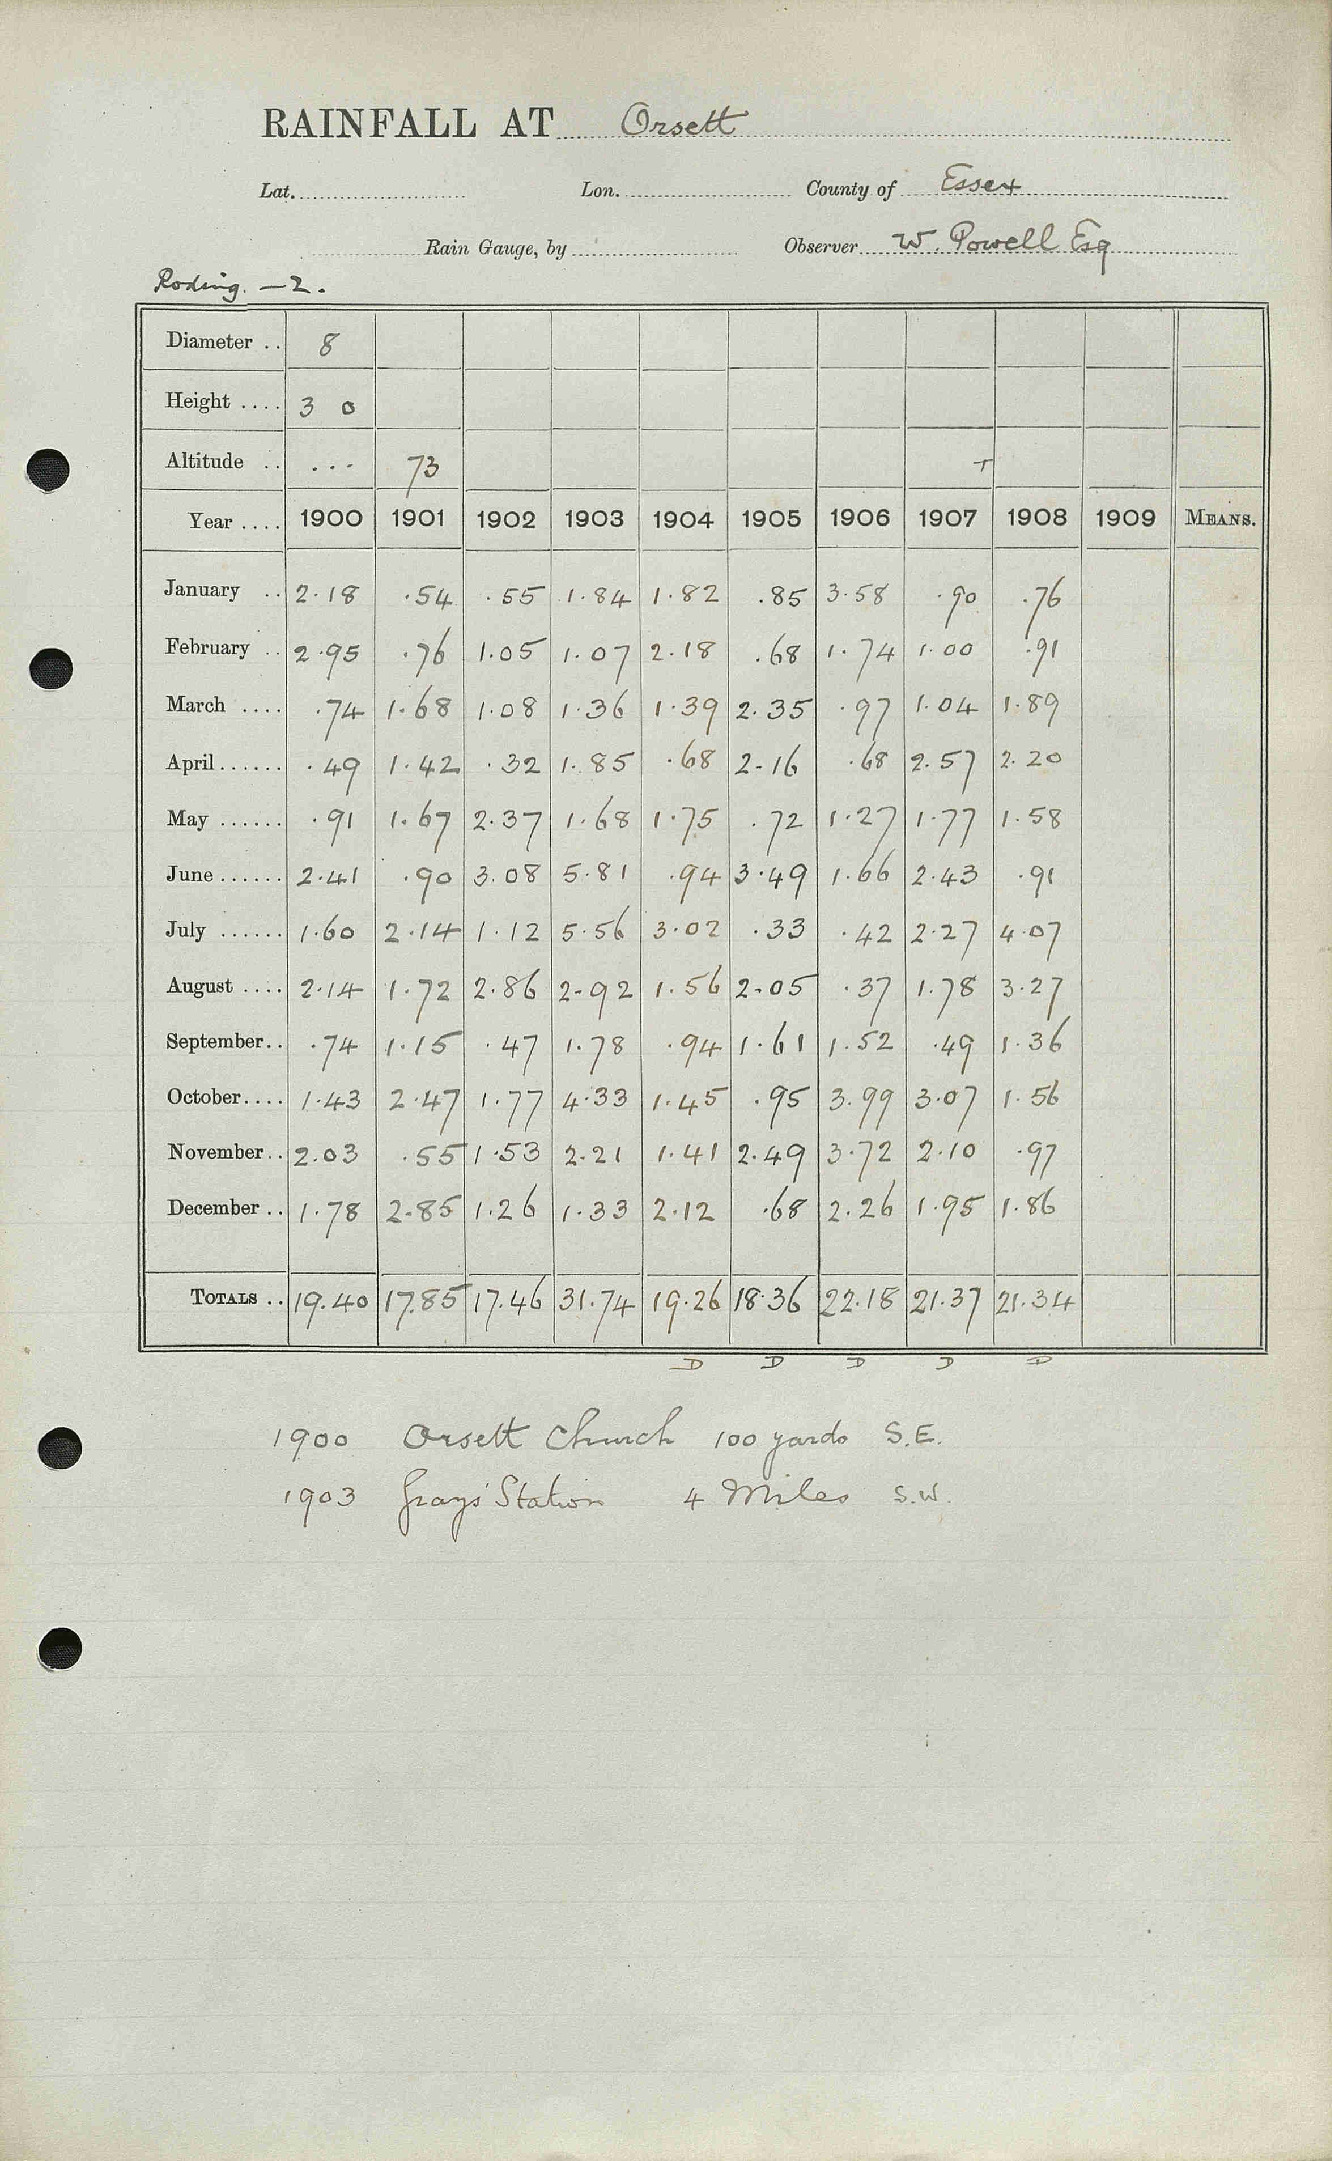 RAINFALL AT Orsett
Lat. Lon. County of Essex
Rain Gauge, by Observer W. Powell Esq
Roding. — 2.
Diameter .. 8
Height .... 3 0
Altitude .. ... 73 T
Year .... 1900 1901 1902 1903 1904 1905 1906 1907 1908 1909 MEANS.
January .. 2.18 .54 .55 1.84 1.82 .85 3.58 .90 .76
February .. 2.95 .76 1.05 1.07 2.18 .68 1.74 1.00 .91
March .... .74 1.68 1.08 1.36 1.39 2.35 .97 1.04 1.89
April...... .49 1.42 .32 1.85 .68 2.16 .68 2.57 2.20
May ...... .91 1.67 2.37 1.68 1.75 .72 1.27 1.77 1.58
June...... 2.41 .90 3.08 5.81 .94 3.49 1.66 2.43 .91
July ...... 1.60 2.14 1.12 5.56 3.02 .33 .42 2.27 4.07
August .... 2.14 1.72 2.86 2.92 1.56 2.05 .37 1.78 3.27
September.. .74 1.15 .47 1.78 .94 1.61 1.52 .49 1.36
October.... 1.43 2.47 1.77 4.33 1.45 .95 3.99 3.07 1.56
November.. 2.03 .55 1.53 2.21 1.41 2.49 3.72 2.10 .97
December .. 1.78 2.85 1.26 1.33 2.12 .68 2.26 1.95 1.86
TOTALS .. 19.40 17.85 17.46 31.74 19.26 18.36 22.18 21.37 21.34
D D D D D
1900 Orsett Church 100 yards S.E.
1903 Grays Station 4 Miles S.W.